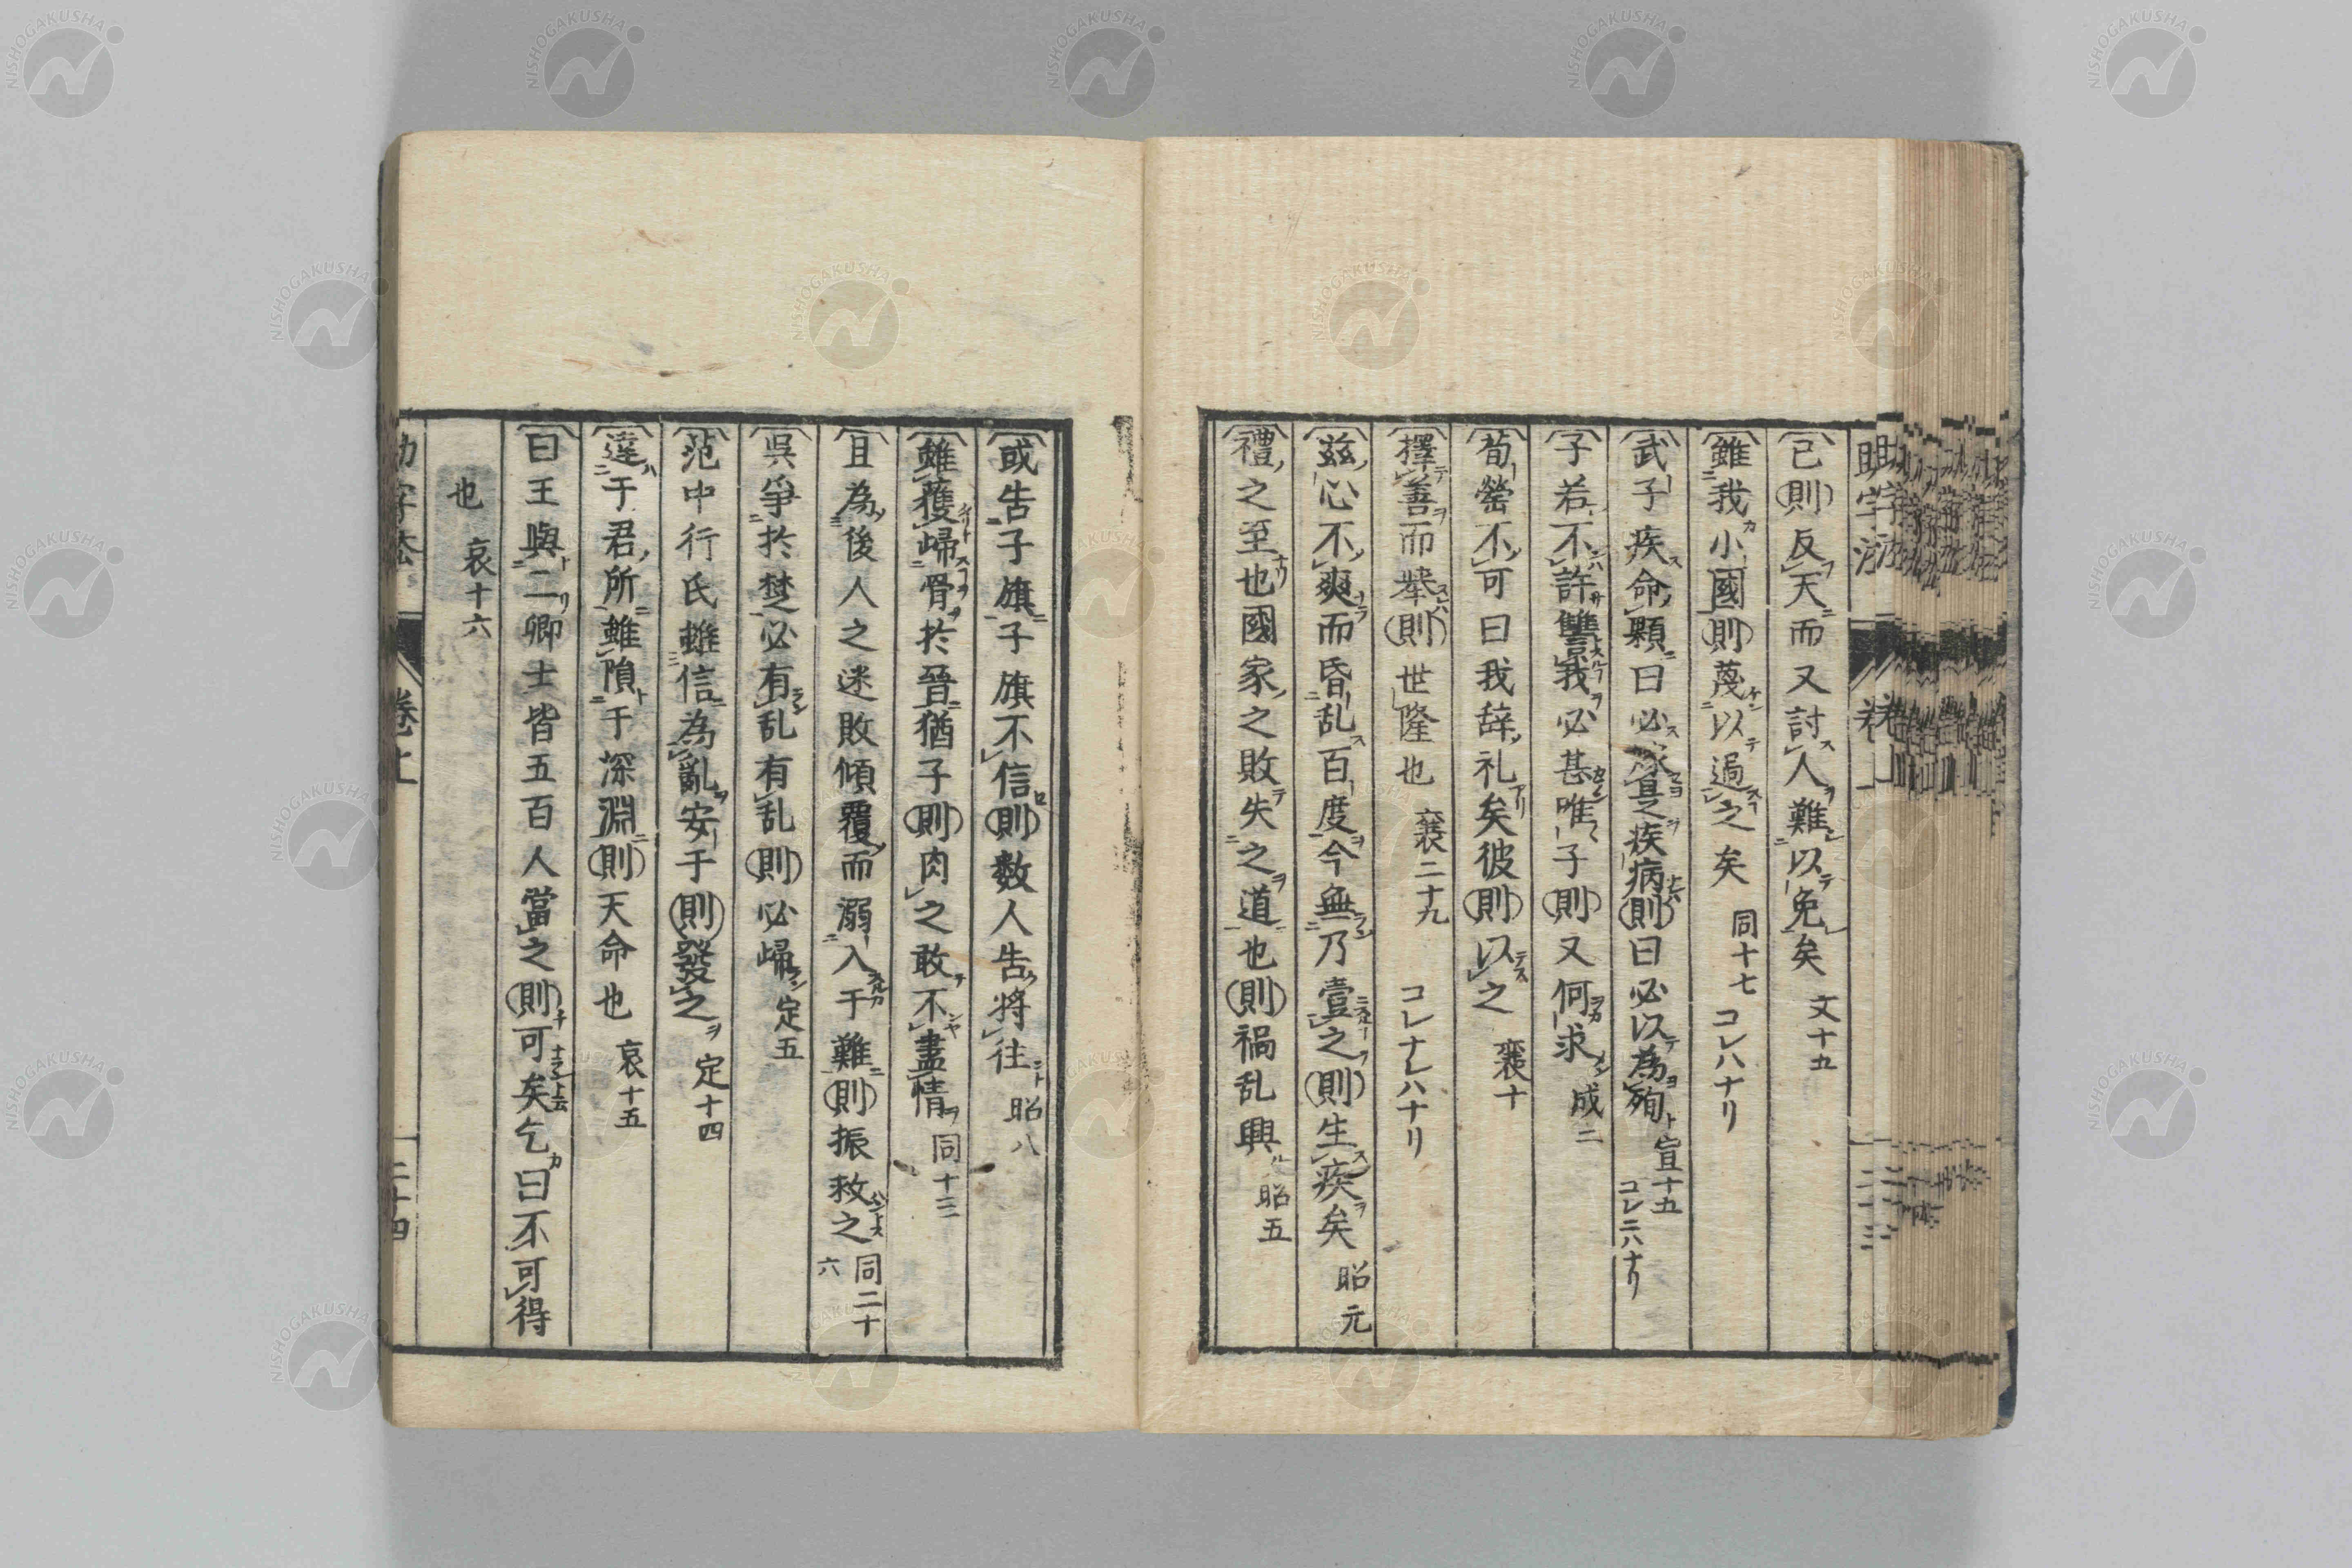 己則反天而又討人難以免矣 文十五
雖我小國則蔑以過之矣 同十七 コレハナリ
武子疾命顆曰必嫁是疾病則曰必以為殉 宣十五 コレニハナリ
子若不許讐我必甚唯子則又何求 成二
荀罃不可曰我辞礼矣彼則以之 襄十
擇善而舉則世隆也 襄二十九 コレナレハナリ
茲心不爽而昏乱百度今無乃壹之則生疾矣 昭元
禮之至也國家之敗失之道也則禍乱興 昭五
或告子旗子旗不信則数人告將往 昭八
雖獲歸骨於晉猶子則肉之敢不盡情 同十三
且為後人之迷敗傾覆而溺入于難則振救之 同二十六
吳爭於楚必有乱有乱則必歸 定五
范中行氏雖信為亂安于則發之 定十四
逹于君所雖隕于深淵則天命也 哀十五
曰王與二卿士皆五百人當之則可矣乞曰不可得
也 哀十六
助字法 卷上 二十四
NISHOGAKUSHA